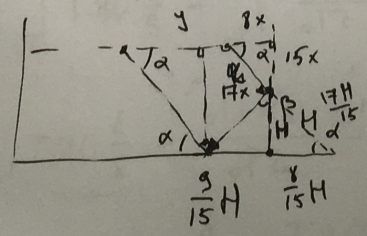 y 8x
α α 15x
17x
β
H H 17H/15
α α
9/15 H 8/15 H